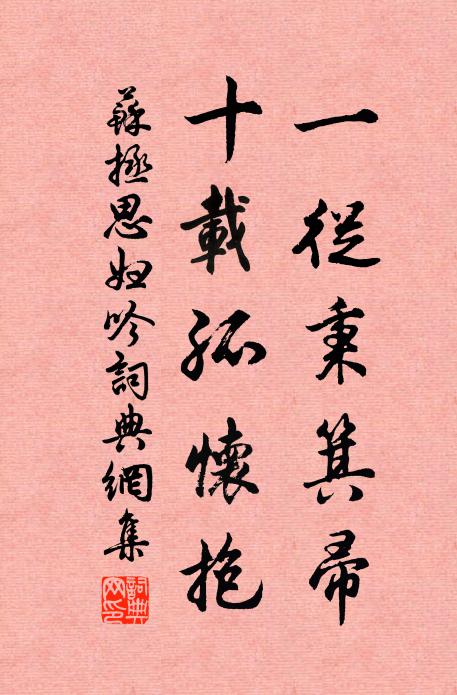 一從秉箕帚
十載孤懷抱
蘇拯思婦吟詞典網集
詞典網印